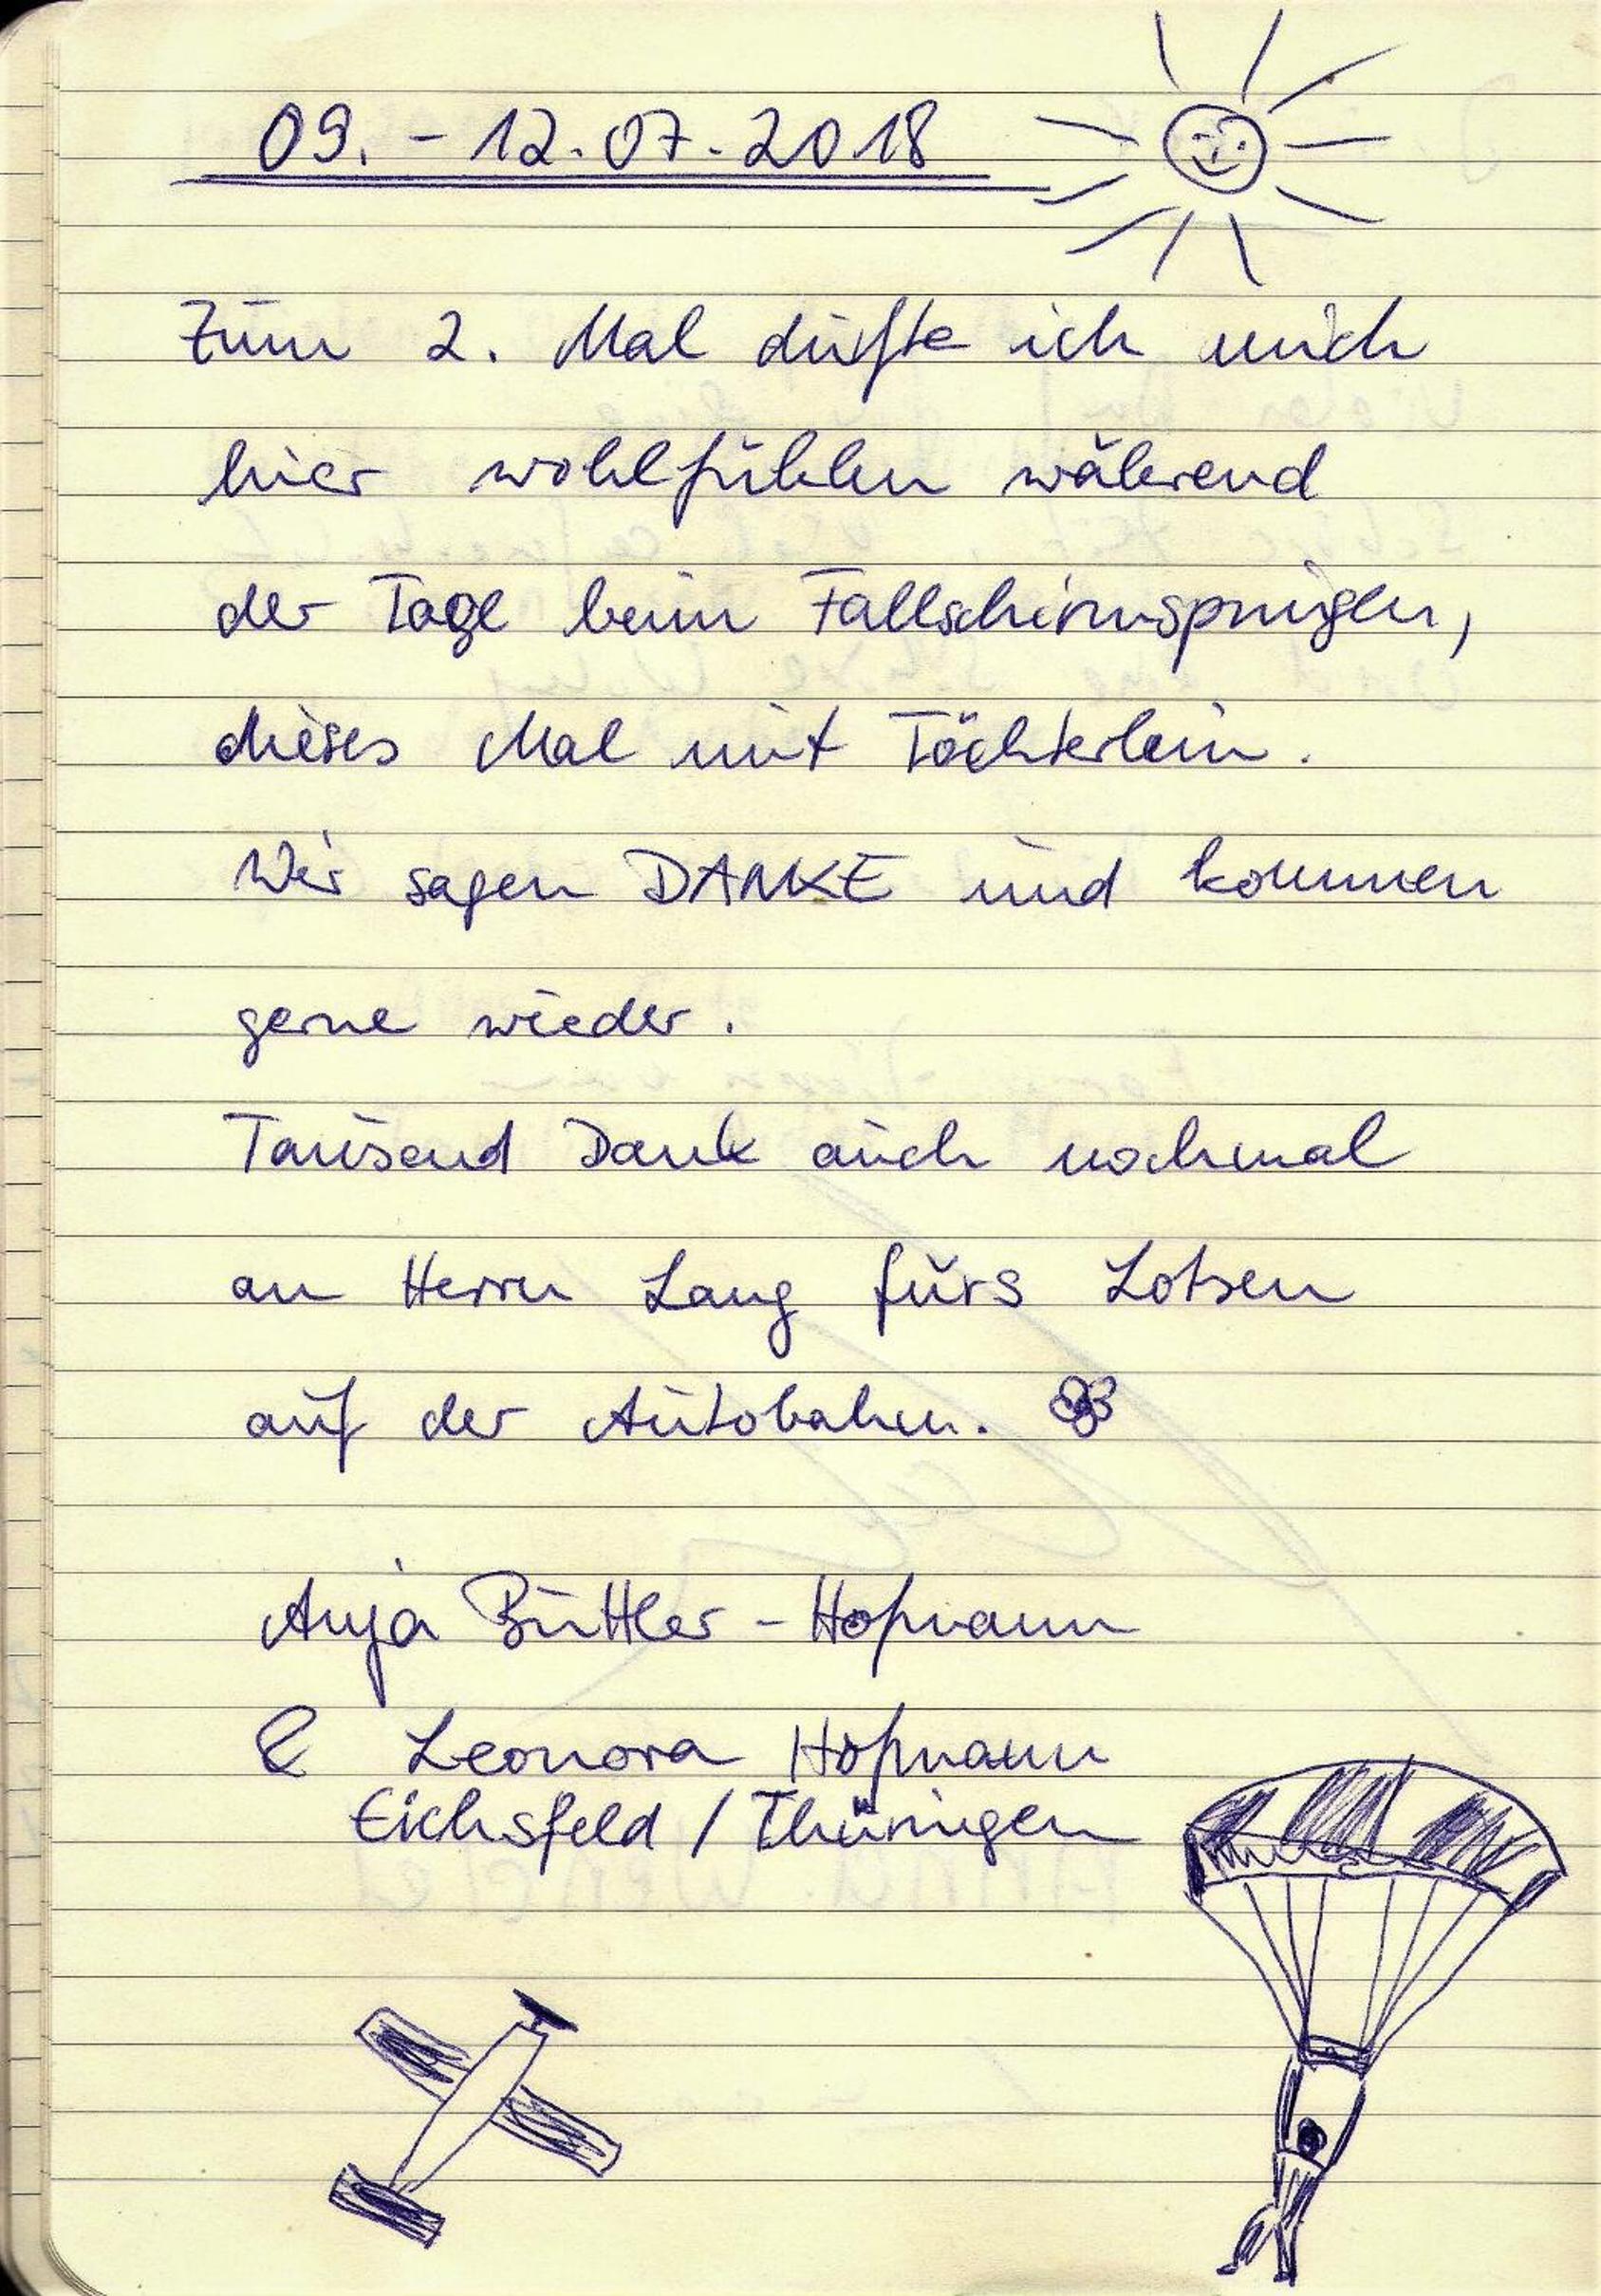 09. - 12.07.2018
Zum 2. Mal durfte ich mich
hier wohlfühlen während
der Tage beim Fallschirmspringen,
dieses Mal mit Töchterlein.
Wir sagen DANKE und kommen
gerne wieder.
Tausend Dank auch nochmal
an Herrn Lang fürs Lotsen
auf der Autobahn.
Anja Büttler - Hofmann
& Leonora Hofmann
Eichsfeld / Thüringen